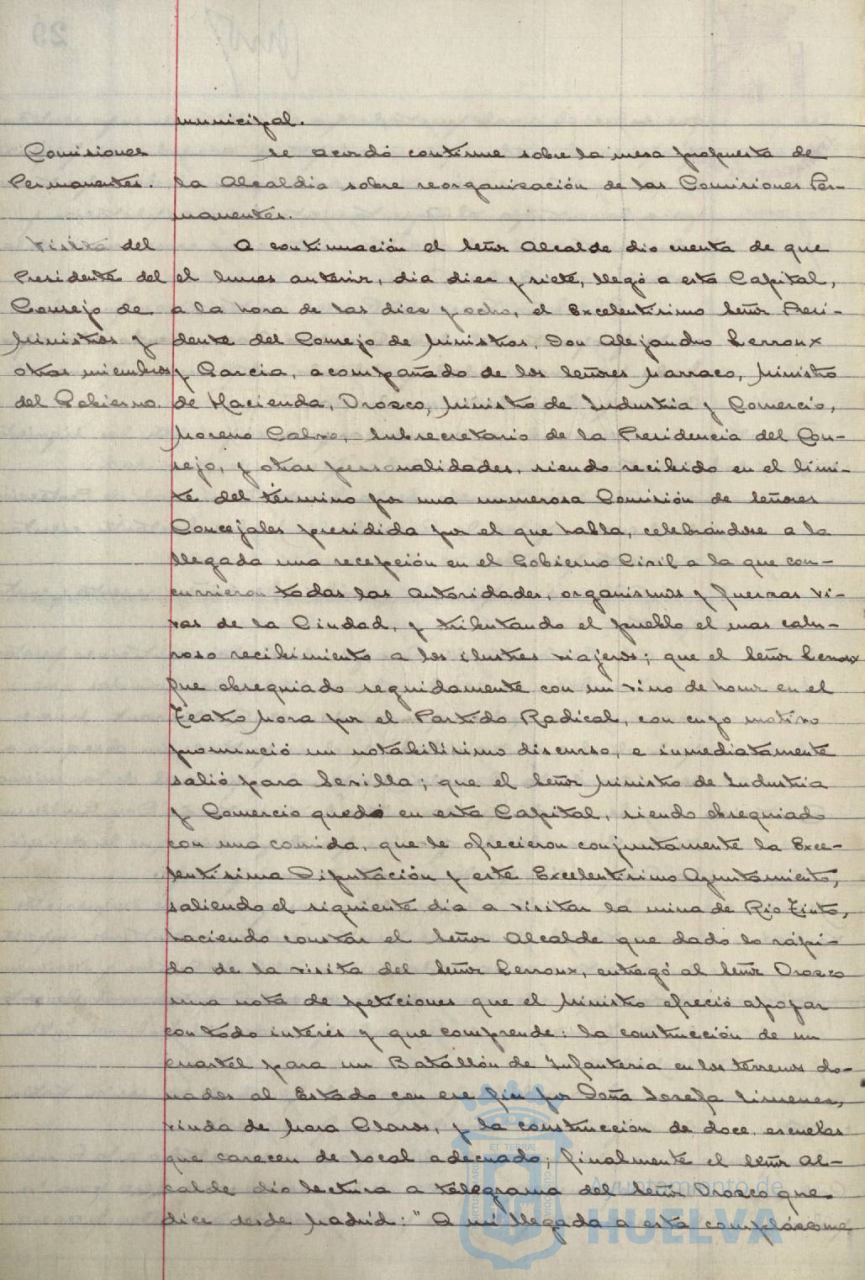 municipal.
Comisiones
Permanentes.
Se acordó continúe sobre la mesa propuesta de
la Alcaldía sobre reorganización de las Comisiones Per-
manentes.
Visita del
Presidente del
Consejo de
Ministros y
otros miembros
del Gobierno.
A continuación el Señor Alcalde dio cuenta de que
el lunes anterior, dia diez y siete, llegó a esta Capital,
a la hora de las diez y ocho, el Excelentísimo Señor Presi-
dente del Consejo de Ministros, Don Alejandro Lerroux
y Garcia, acompañado de los Señores Marraco, Ministro
de Hacienda, Orozco, Ministro de Industria y Comercio,
Moreno Calvo, Subsecretario de la Presidencia del Con-
sejo, y otras personalidades, siendo recibido en el limi-
te del término por una numerosa Comisión de Señores
Concejales presidida por el que habla, celebrándose a la
llegada una recepción en el Gobierno Civil a la que con-
currieron todas las autoridades, organismos y fuerzas vi-
vas de la Ciudad, y tributando el pueblo el mas calu-
roso recibimiento a los ilustres viajeros; que el Señor Lerroux
fue obsequiado seguidamente con un vino de honor en el
Teatro Mora por el Partido Radical, con cuyo motivo
pronunció un notabilísimo discurso, e inmediatamente
salió para Sevilla; que el Señor Ministro de Industria
y Comercio quedó en esta Capital, siendo obsequiado
con una comida, que le ofrecieron conjuntamente la Exce-
lentísima Diputación y este Excelentísimo Ayuntamiento,
saliendo el siguiente dia a visitar la mina de Rio Tinto,
haciendo constar el Señor Alcalde que dado lo rápi-
do de la visita del Señor Lerroux, entregó al Señor Orozco
una nota de peticiones que el Ministro ofreció apoyar
con todo interés y que comprende: la construcción de un
cuartel para un Batallón de Infantería en los terrenos do-
nados al Estado con ese fin por Doña Josefa Jimenez,
viuda de Mora Claros, y la construcción de doce escuelas
que carecen de local adecuado; finalmente el Señor Al-
calde dio lectura a telegrama del Señor Orozco que
dice desde Madrid: "A mi llegada a esta complázcome
Ayuntamiento de
HUELVA